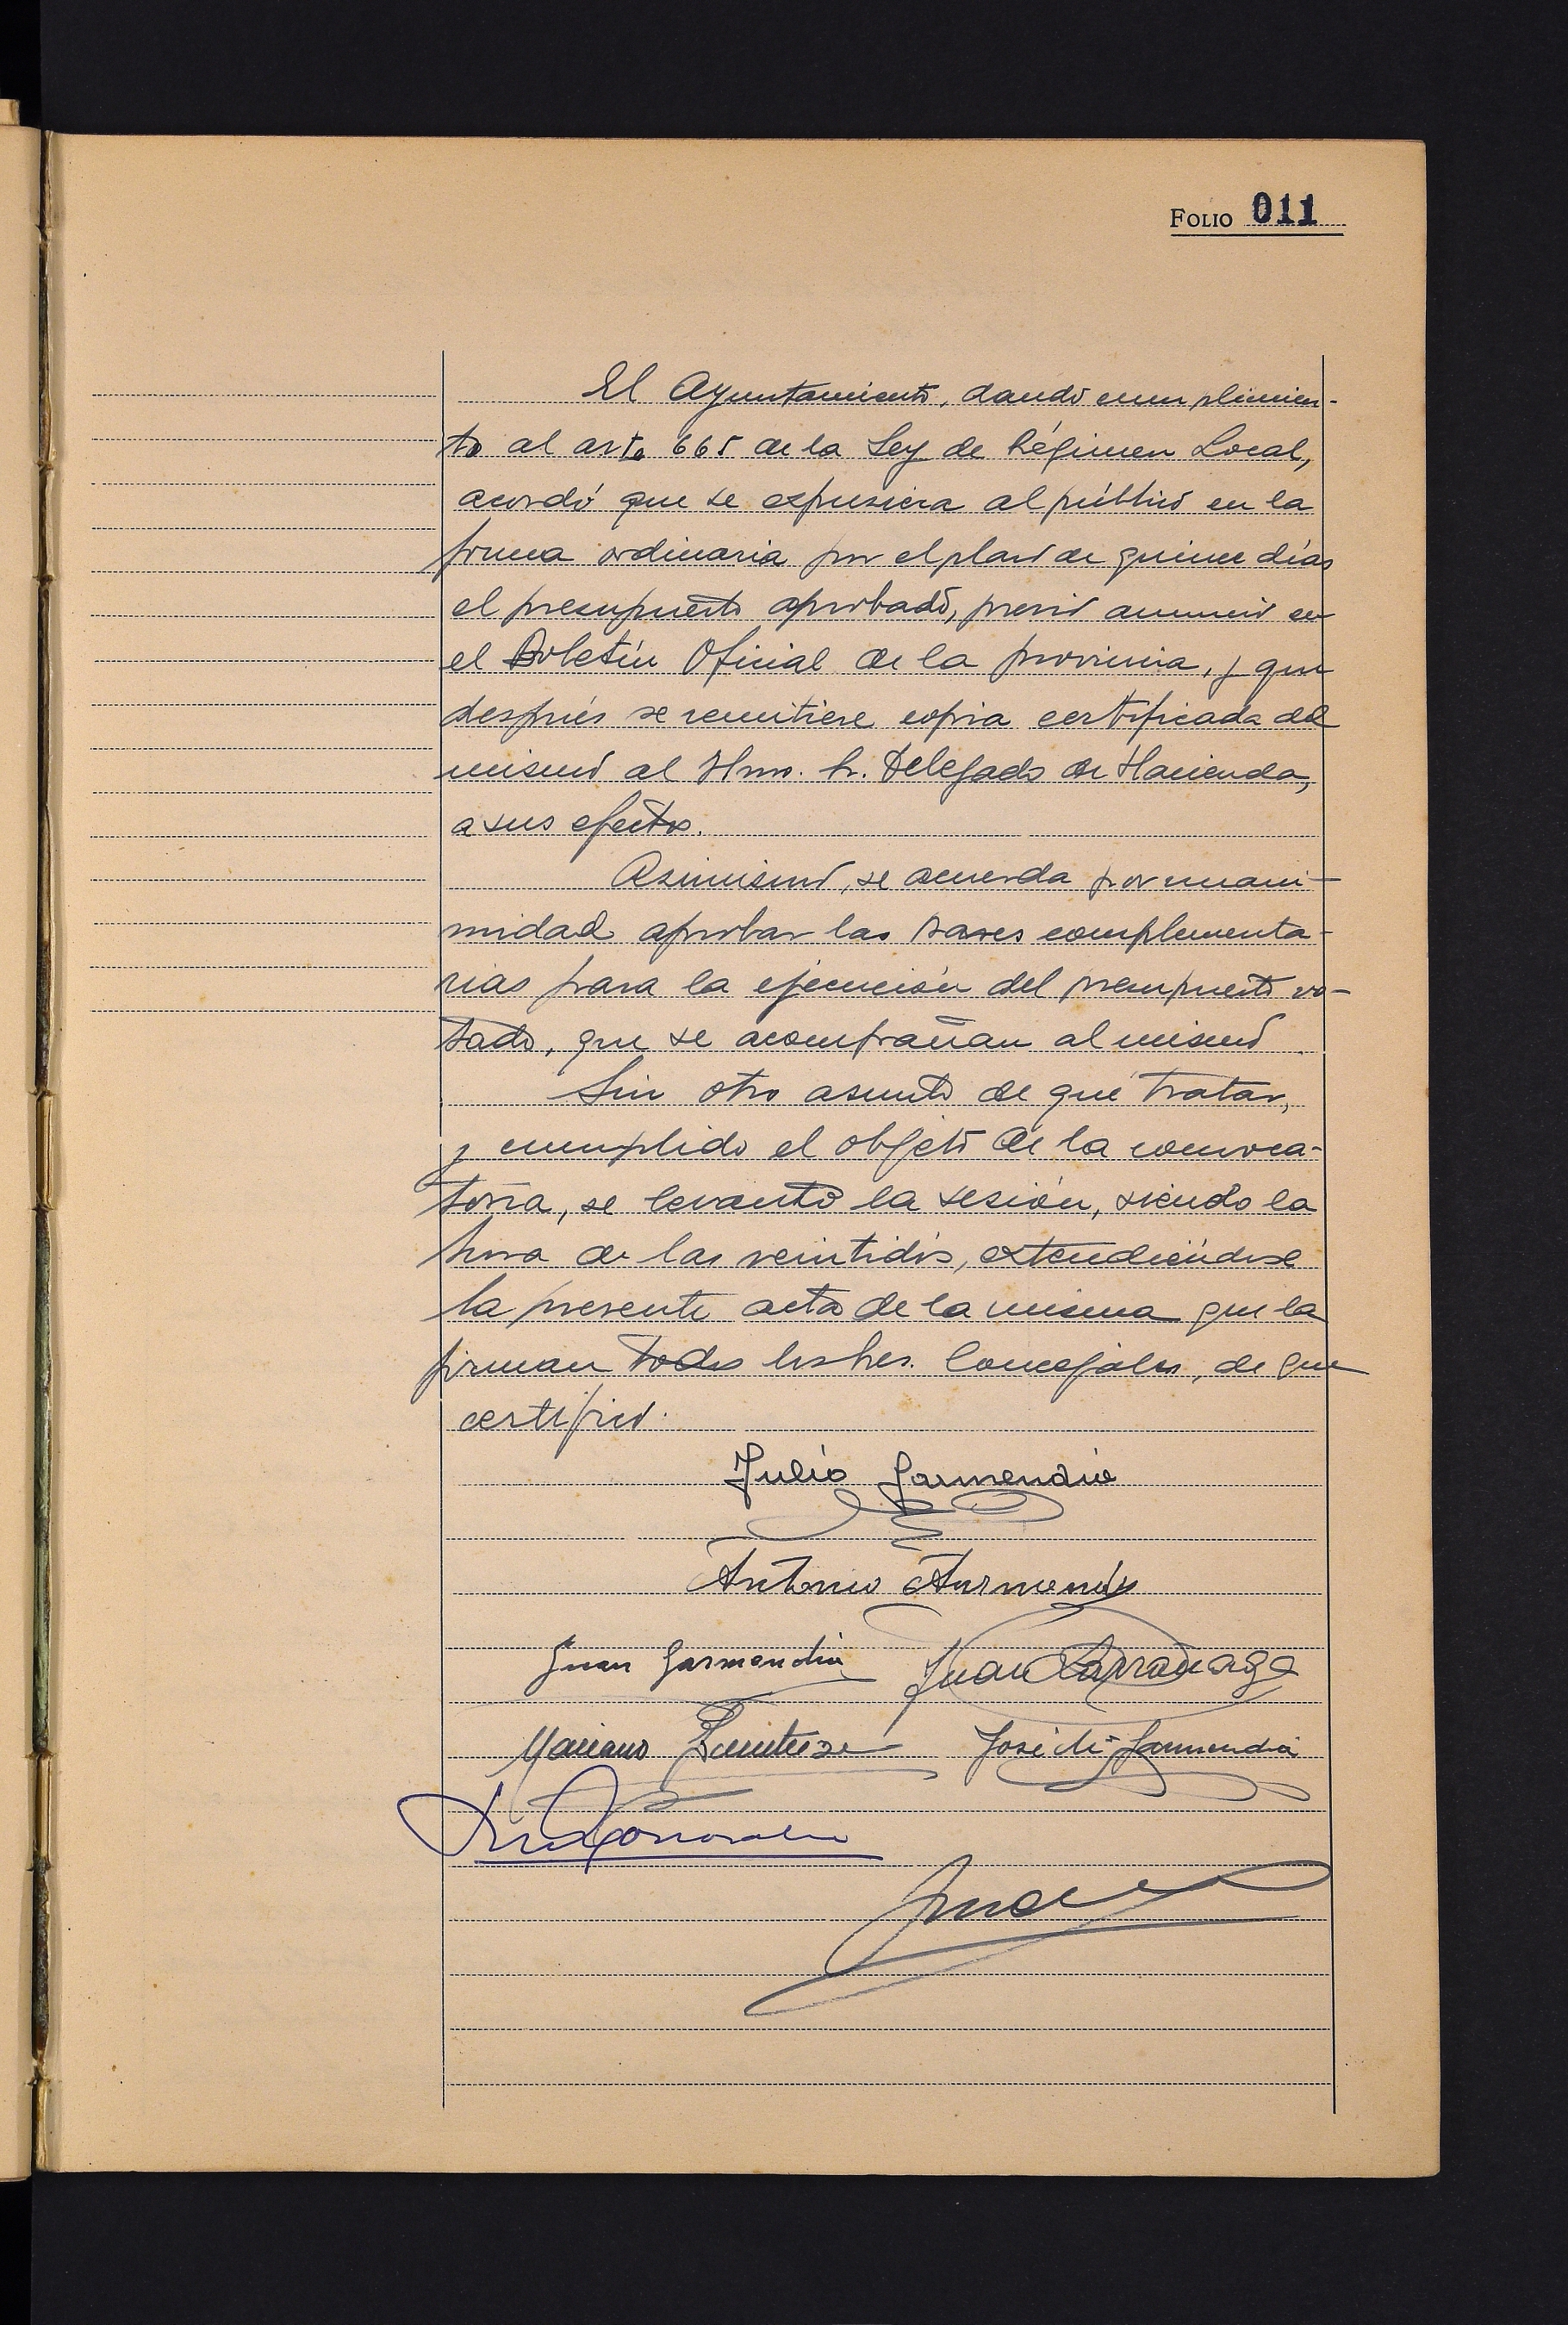 FOLIO 011
El Ayuntamiento, dando cumplimien-
to al arto 665 de la Ley de Régimen Local,
acordó que se expusiera al público en la
forma ordinaria por el plazo de quince días
el presupuesto aprobado, previo anuncio en
el Boletín Oficial de la provincia, y que
después se remitiese copia certificada del
mismo al Ilmo. Sr. Delegado de Hacienda,
a sus efectos.
Asimismo, se acuerda por unani-
midad aprobar las bases complementa-
rias para la ejecución del presupuesto vo-
tado, que se acompañan al mismo.
Sin otro asunto de qué tratar,
y cumplido el objeto de la convoca-
toria, se levantó la sesión, siendo la
hora de las veintidós, extendiéndose
la presente acta de la misma que la
firman todos los Sres. Concejales, de que
certifico.
Julio Garmendia
Antonio
Juan Garmendia Juan Larrañaga
Mariano José Mª Garmendia